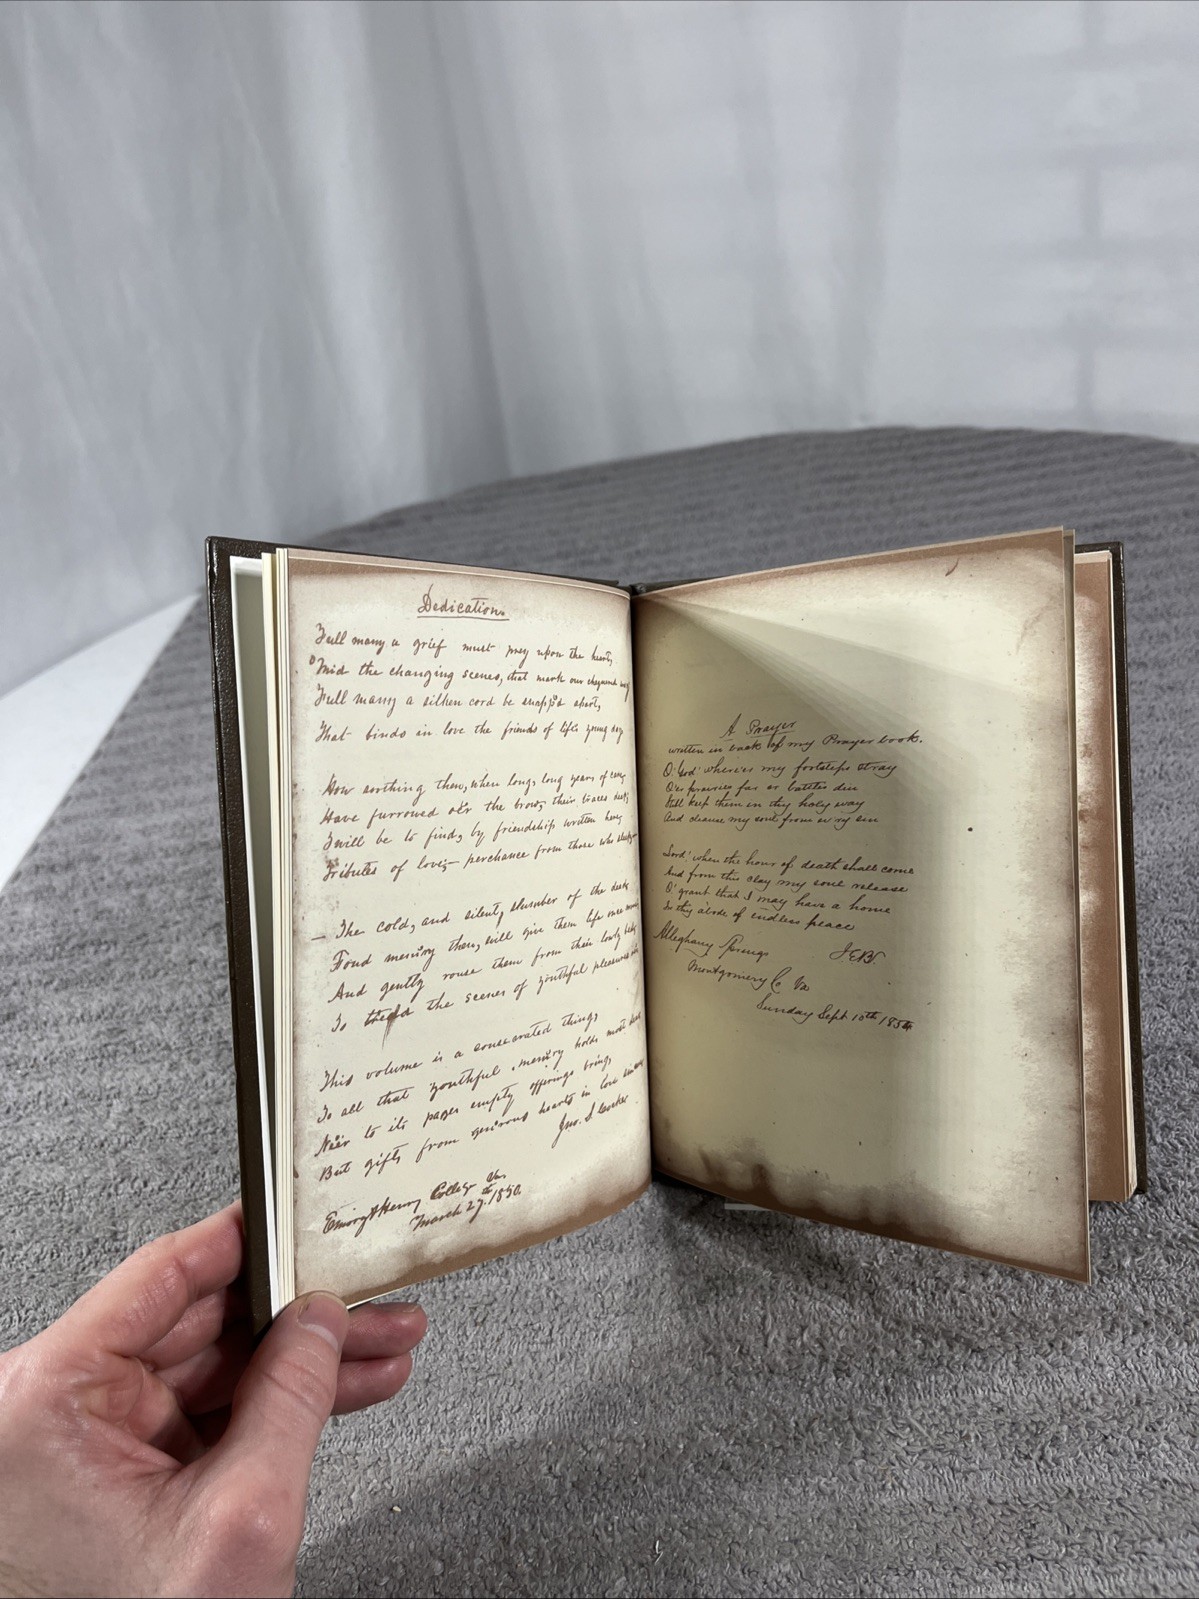 Dedication
Full many a grief must prey upon the heart,
Mid the changing scenes, that mark our
Full many a silken cord be snapp'd apart,
That binds in love the friends of life's young day
How soothing then, when long, long years of care,
Have furrowed o'er the brow, their traces deep;
Twill be to find, by friendship written here,
Tributes of love;— perchance from those who sleep—
— The cold, and silent, slumber of the dead;
Fond memory then, will give them life once more
And gently rouse them from their lowly bed,
To tread the scenes of youthful pleasures
This volume is a consecrated thing,
To all that youthful memory holds most dear
Ne'er to its pages empty offerings bring,
But gifts from generous hearts in love
Jno. S
Emory & Henry College Va.
March 27th 1850.
A Prayer
written in back of my Prayer book.
O! God! where'er my footsteps stray
O'er prairies far or battles din
Still keep them in thy holy way
And cleanse my soul from ev'ry sin
Lord! when the hour of death shall come
And from this clay my soul release
O! grant that I may have a home
In thy abode of endless peace
Alleghany Springs
J.E.B.
Montgomery C. Va
Sunday Sept 10th 1854